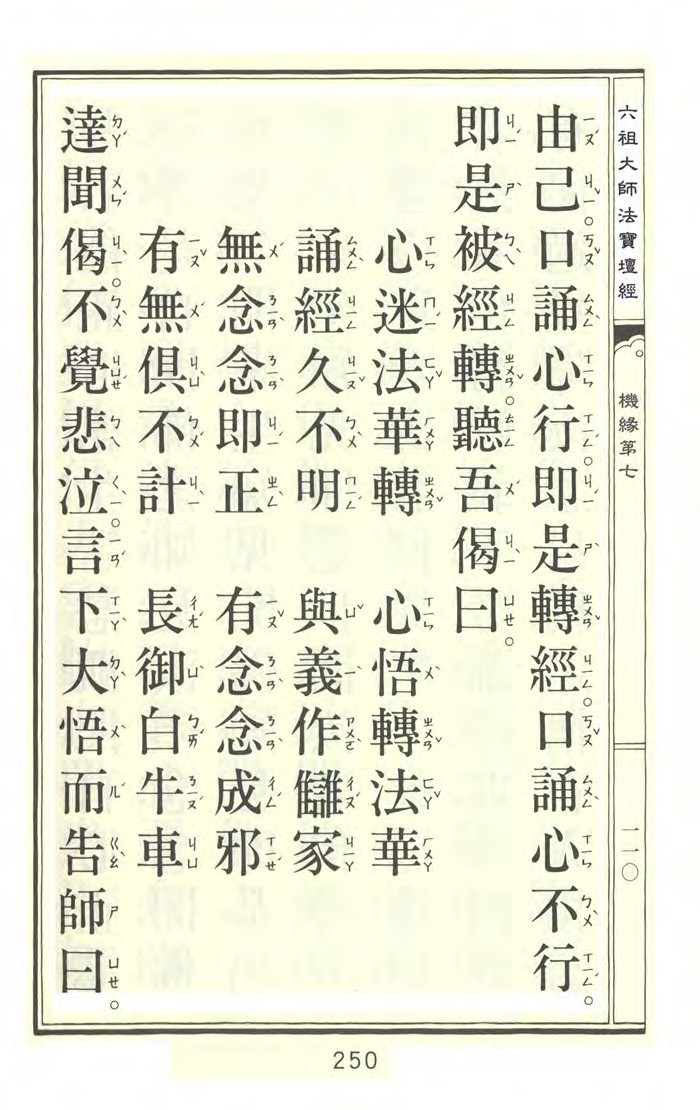 六祖大師法寶壇經 機緣第七 二一〇
由己。口誦心行。即是轉經。口誦心不行。
即是被經轉。聽吾偈曰。
心迷法華轉 心悟轉法華
誦經久不明 與義作讎家
無念念即正 有念念成邪
有無俱不計 長御白牛車
達聞偈。不覺悲泣。言下大悟而告師曰。
250